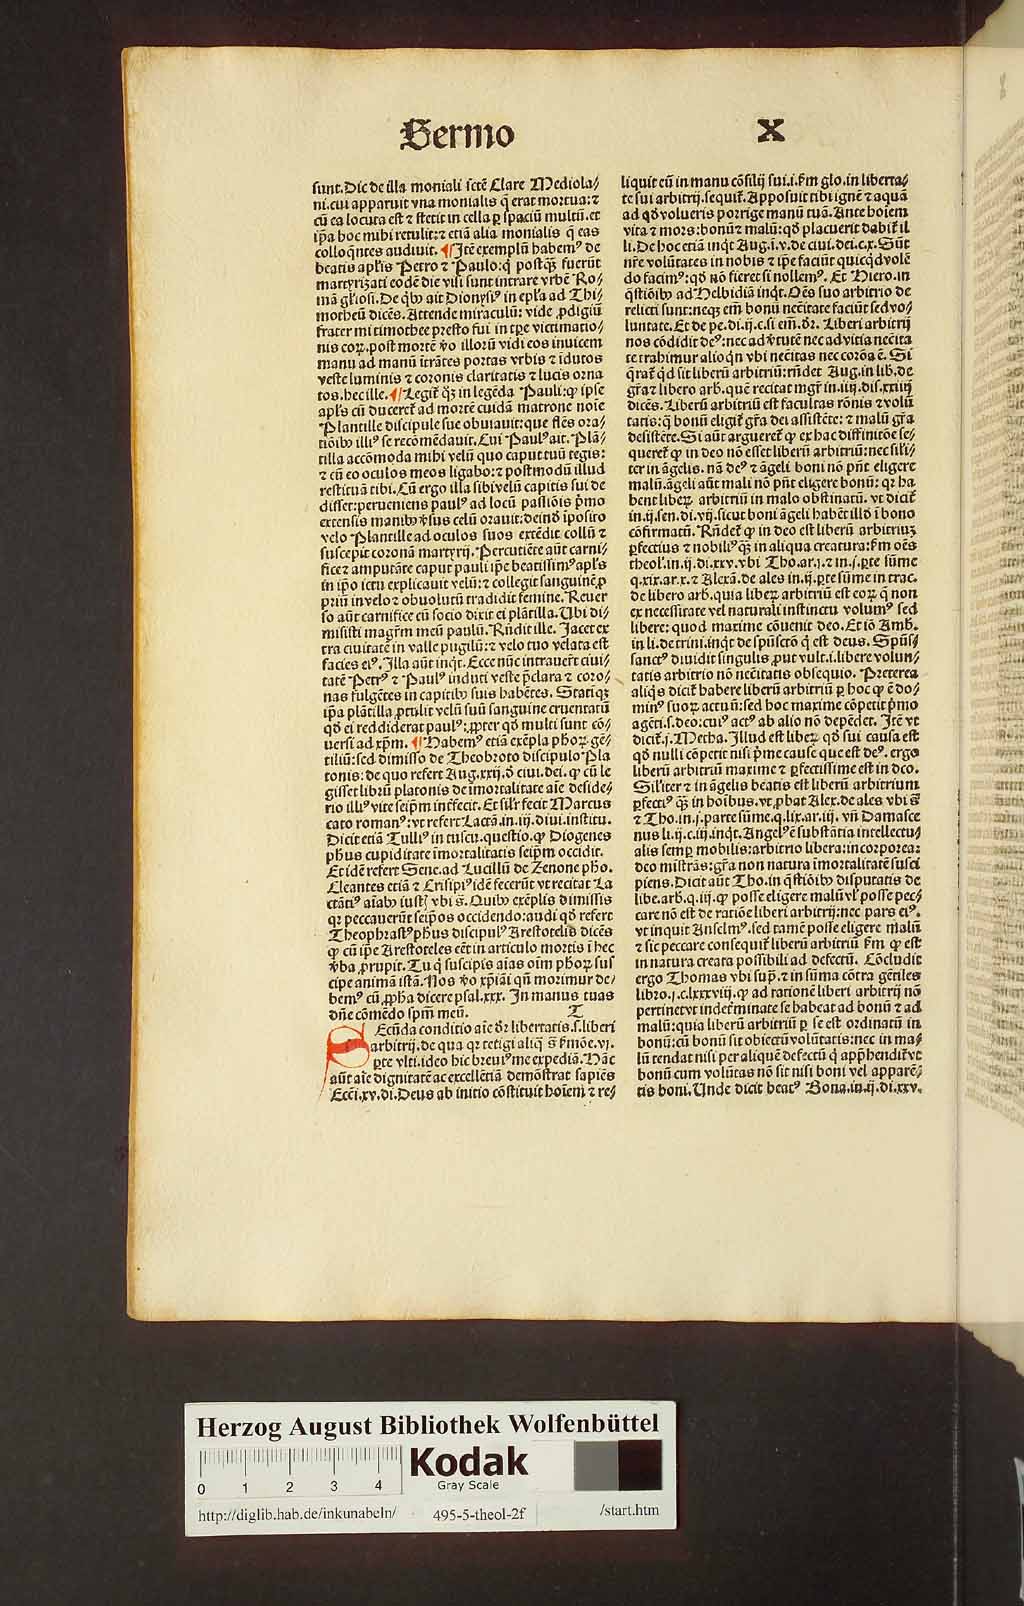 Sermo X
sunt. Dic de illa moniali sctē Clare Mediola/
ni. cui apparuit vna monialis q̄ erat mortua: ⁊
cū ea locuta est ⁊ stetit in cella ꝑ spaciū multū. et
ip̄a hoc mihi retulit: ⁊ etiā alia monialis q̄ eas
colloqn̄tes audiuit. ¶ Itē exemplū habemꝰ de
beatis apl'is Petro ⁊ Paulo: q̄ postq̄ꝫ fuerūt
martyrizati eodē die visi sunt intrare vrbē Ro/
mā gl'iosi. De qͦ ait Dionysiꝰ in epl'a ad Thi/
motheū dicēs. Attende miraculū: vide ꝓdigiū
frater mi timothee presto fui in tꝑe victimatio/
nis eoꝝ. post mortē ṽo illorū vidi eos inuicem
manu ad manū ītrātes portas vrbis ⁊ īdutos
veste luminis ⁊ coronis claritatis ⁊ lucis orna
tos. hec ille. ¶ Legit̄ qꝫ in legēda Pauli: ꝙ ipse
apl's cū duceret̄ ad mortē cuidā matrone noīe
Plantille discipule sue obuiauit: que flēs ora/
tiōibꝰ illiꝰ se recōmēdauit. Cui Paulꝰ ait. Plā/
tilla accōmoda mihi velū quo caput tuū tegis:
⁊ cū eo oculos meos ligabo: ⁊ postmodū illud
restituā tibi. Cū ergo illa sibi velū capitis sui de
disset: perueniens paulꝰ ad locū passiōis p̄mo
extensis manibꝰ ṽsus celū orauit: deinō īposito
velo Plantille ad oculos suos extēdit collū ⁊
suscepit coronā martyrij. Percutiēte aūt carni/
fice ⁊ amputāte caput pauli ip̄e beatissimꝰ apl's
in ip̄o ictu explicauit velū: ⁊ collegit sanguinē ꝓ
priū in velo ⁊ obuolutū tradidit femine. Reuer
so aūt carnifice cū socio dixit ei plātilla. Ubi di/
misisti magr̄m meū paulū. Rn̄dit ille. Jacet ex
tra ciuitatē in valle pugilū: ⁊ velo tuo velata est
facies eiꝰ. Illa aūt inqt̄. Ecce nūc intrauer̄t ciui/
tatē Petrꝰ ⁊ Paulꝰ induti veste p̄clara ⁊ coro/
nas fulgētes in capitibꝰ suis habētes. Statiqꝫ
ip̄a plātilla ꝓtulit velū suū sanguine cruentatū
qd̄ ei reddiderat paulꝰ: ꝓpter qd̄ multi sunt cō/
uersi ad xp̄m. ¶ Habemꝰ etiā exēpla ph'oꝝ gē/
tiliū: sed dimisso de Theobroto discipulo Pla
tonis: de quo refert Aug. xxij. ō ciui. dei. ꝙ cū le
gisset librū platonis de īmortalitate aīe deside/
rio illiꝰ vite seip̄m īterfecit. Et sil'r fecit Marcus
cato romanꝰ: vt refert Lactā. in. iij. diui. institu.
Dicit etiā Tulliꝰ in tuscu. questio. ꝙ Diogenes
ph'us cupiditate īmortalitatis seip̄m occidit.
Et idē refert Sene. ad Lucillū de Zenone ph'o.
Cleantes etiā ⁊ Crisipiꝰ idē fecerūt vt recitat La
ctātiꝰ vbi s̄. Quibꝰ exēplis dimissis
qꝛ peccauerūt seip̄os occidendo: audi qd̄ refert
Theophrastꝰ ph'us discipulꝰ Arestotelis dicēs
ꝙ cū ip̄e Arestoteles eēt in articulo mortis ī hec
ṽba ꝓrupit. Tu q̄ suscipis aīas oīm ph'oꝝ sus
cipe animā istā. Nos ṽo xp̄iāi qn̄ morimur de/
bemꝰ cū ꝓph'a dicere psal. xxx. In manus tuas
dn̄e cōmēdo sp̄m meū. T
Secūda conditio aīe d̄r libertatis. s. liberi
arbitrij. de qua qꝛ tetigi aliq̄ s̄ f̄mōe. vj.
ꝑte vlti. ideo hic breuiꝰ me expediā. Hāc
aūt aīe dignitatē ac excellētiā demōstrat sapiēs
Ecci. xv. di. Deus ab initio cōstituit hoīem ⁊ re/
liquit eū in manu cōsilij sui. i. fm̄ glo. in liberta/
te sui arbitrij. sequit̄. Apposuit tibi ignē ⁊ aquā
ad qd̄ volueris porrige manū tuā. Ante hoīem
vita ⁊ mors: bonū ⁊ malū: qd̄ placuerit dabit̄ il
li. De hoc etiā inqt̄ Aug. ī. v. de ciui. dei. c. x. Sūt
nr̄e volūtates in nobis ⁊ ip̄e faciūt quicqd̄ volē
do facimꝰ: qd̄ nō fieret si nollemꝰ. Et Hiero. in
q̄stiōibꝰ ad Helbidiā inqt̄. Oēs suo arbitrio de
relicti sunt: neqꝫ em̄ bonū necītate faciūt sed vo/
luntate. Et de pe. di. ij. c. si em̄. d̄r. Liberi arbitrij
nos cōdidit deꝰ: nec ad ṽtutē nec ad vitia necīta
te trahimur alioqn̄ vbi necītas nec corōa ē. Si
q̄rat̄ qd̄ sit liberū arbitriū: rn̄det Aug. in lib. de
gr̄a ⁊ libero arb. quē recitat mgr̄ in. iiij. dis. xxiiij
dicēs. Liberū arbitriū est facultas rōnis ⁊ volū
tatis: q̄ bonū eligit̄ gr̄a dei assistēte: ⁊ malū gr̄a
desistēte. Si aūt argueret̄ ꝙ ex hac diffinitōe se/
queret̄ ꝙ in deo nō esset liberū arbitriū: nec sil'i/
ter in āgelis. nā deꝰ ⁊ āgeli boni nō pn̄t eligere
malū. āgeli aūt mali nō pn̄t eligere bonū: qꝛ ha
bent libeꝝ arbitriū in malo obstinatū. vt dicit̄
in. ij. sen. di. vij. sicut boni āgeli habēt illō ī bono
cōfirmatū. Rn̄det̄ ꝙ in deo est liberū arbitriuꝫ
ꝑfectius ⁊ nobiliꝰ q̄ꝫ in aliqua creatura: fm̄ oēs
theol'. in. ij. di. xxv. vbi Tho. ar. j. ⁊ in. j. ꝑte sūme
q. xix. ar. x. ⁊ Alexā. de ales in. ij. ꝑte sūme in trac.
de libero arb. quia libeꝝ arbitriū est eoꝝ q̄ non
ex necessitate vel naturali instinctu volumꝰ sed
libere: quod maxime cōuenit deo. Et iō Amb.
in li. de trini. inqt̄ de spūsctō q̄ est deus. Spūs/
sanctꝰ diuidit singulis ꝓut vult. i. libere volun/
tatis arbitrio nō necītatis obsequio. Preterea
aliqs̄ dicit̄ habere liberū arbitriū ꝑ hoc ꝙ ē do/
minꝰ suoꝝ actuū: sed hoc maxime cōpetit p̄mo
agēti. s. deo: cuiꝰ actꝰ ab alio nō depēdet. Itē vt
dicit̄. j. Metha. Illud est libeꝝ qd̄ sui causa est
qd̄ nulli cōpetit nisi p̄me cause que est deꝰ. ergo
liberū arbitriū maxime ⁊ ꝑfectissime est in deo.
Sil'iter ⁊ in āgelis beatis est liberū arbitrium
ꝑfectiꝰ q̄ꝫ in hoībus. vt ꝓbat Alex. de ales vbi s̄
⁊ Tho. in. j. parte sūme. q. lix. ar. iij. vn̄ Damasce
nus li. ij. c. iij. inqt̄. Angelꝰ ē substātia intellectu/
alis semꝑ mobilis: arbitrio libera: incorporea:
deo mīstrās: gr̄a non natura īmortalitatē susci
piens. Dicit aūt Tho. in q̄stiōibꝰ disputatis de
libe. arb. q. iij. ꝙ posse eligere malū vl' posse pec/
care nō est de ratiōe liberi arbitrij: nec pars eiꝰ.
vt inquit Anselmꝰ. sed tamē posse eligere malū
⁊ sic peccare consequit̄ liberū arbitriū fm̄ ꝙ est
in natura creata possibili ad defectū. Cōcludit
ergo Thomas vbi sup̄. ⁊ in sūma cōtra gētiles
libro. j. c. lxxxviij. ꝙ ad rationē liberi arbitrij nō
pertinet vt indet̄minate se habeat ad bonū ⁊ ad
malū: quia liberū arbitriū ꝑ se est ordinatū in
bonū: cū bonū sit obiectū volūtatis: nec in ma/
lū tendat nisi per aliquē defectū q̄ app̄hendit̄ vt
bonū cum volūtas nō sit nisi boni vel apparē/
tis boni. Unde dicit beatꝰ Bona. in. ij. di. xxv.
Herzog August Bibliothek Wolfenbüttel
0 1 2 3 4
Kodak
Gray Scale
http://diglib.hab.de/inkunabeln/ 495-5-theol-2f /start.htm